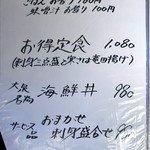 ごはん お替り 100円
味噌汁 お替り 100円
お得定食 1.080
(刺身三点盛と実さば竜田揚げ)
大人名物 海鮮丼 980
サービス品 おまかせ刺身盛合せ